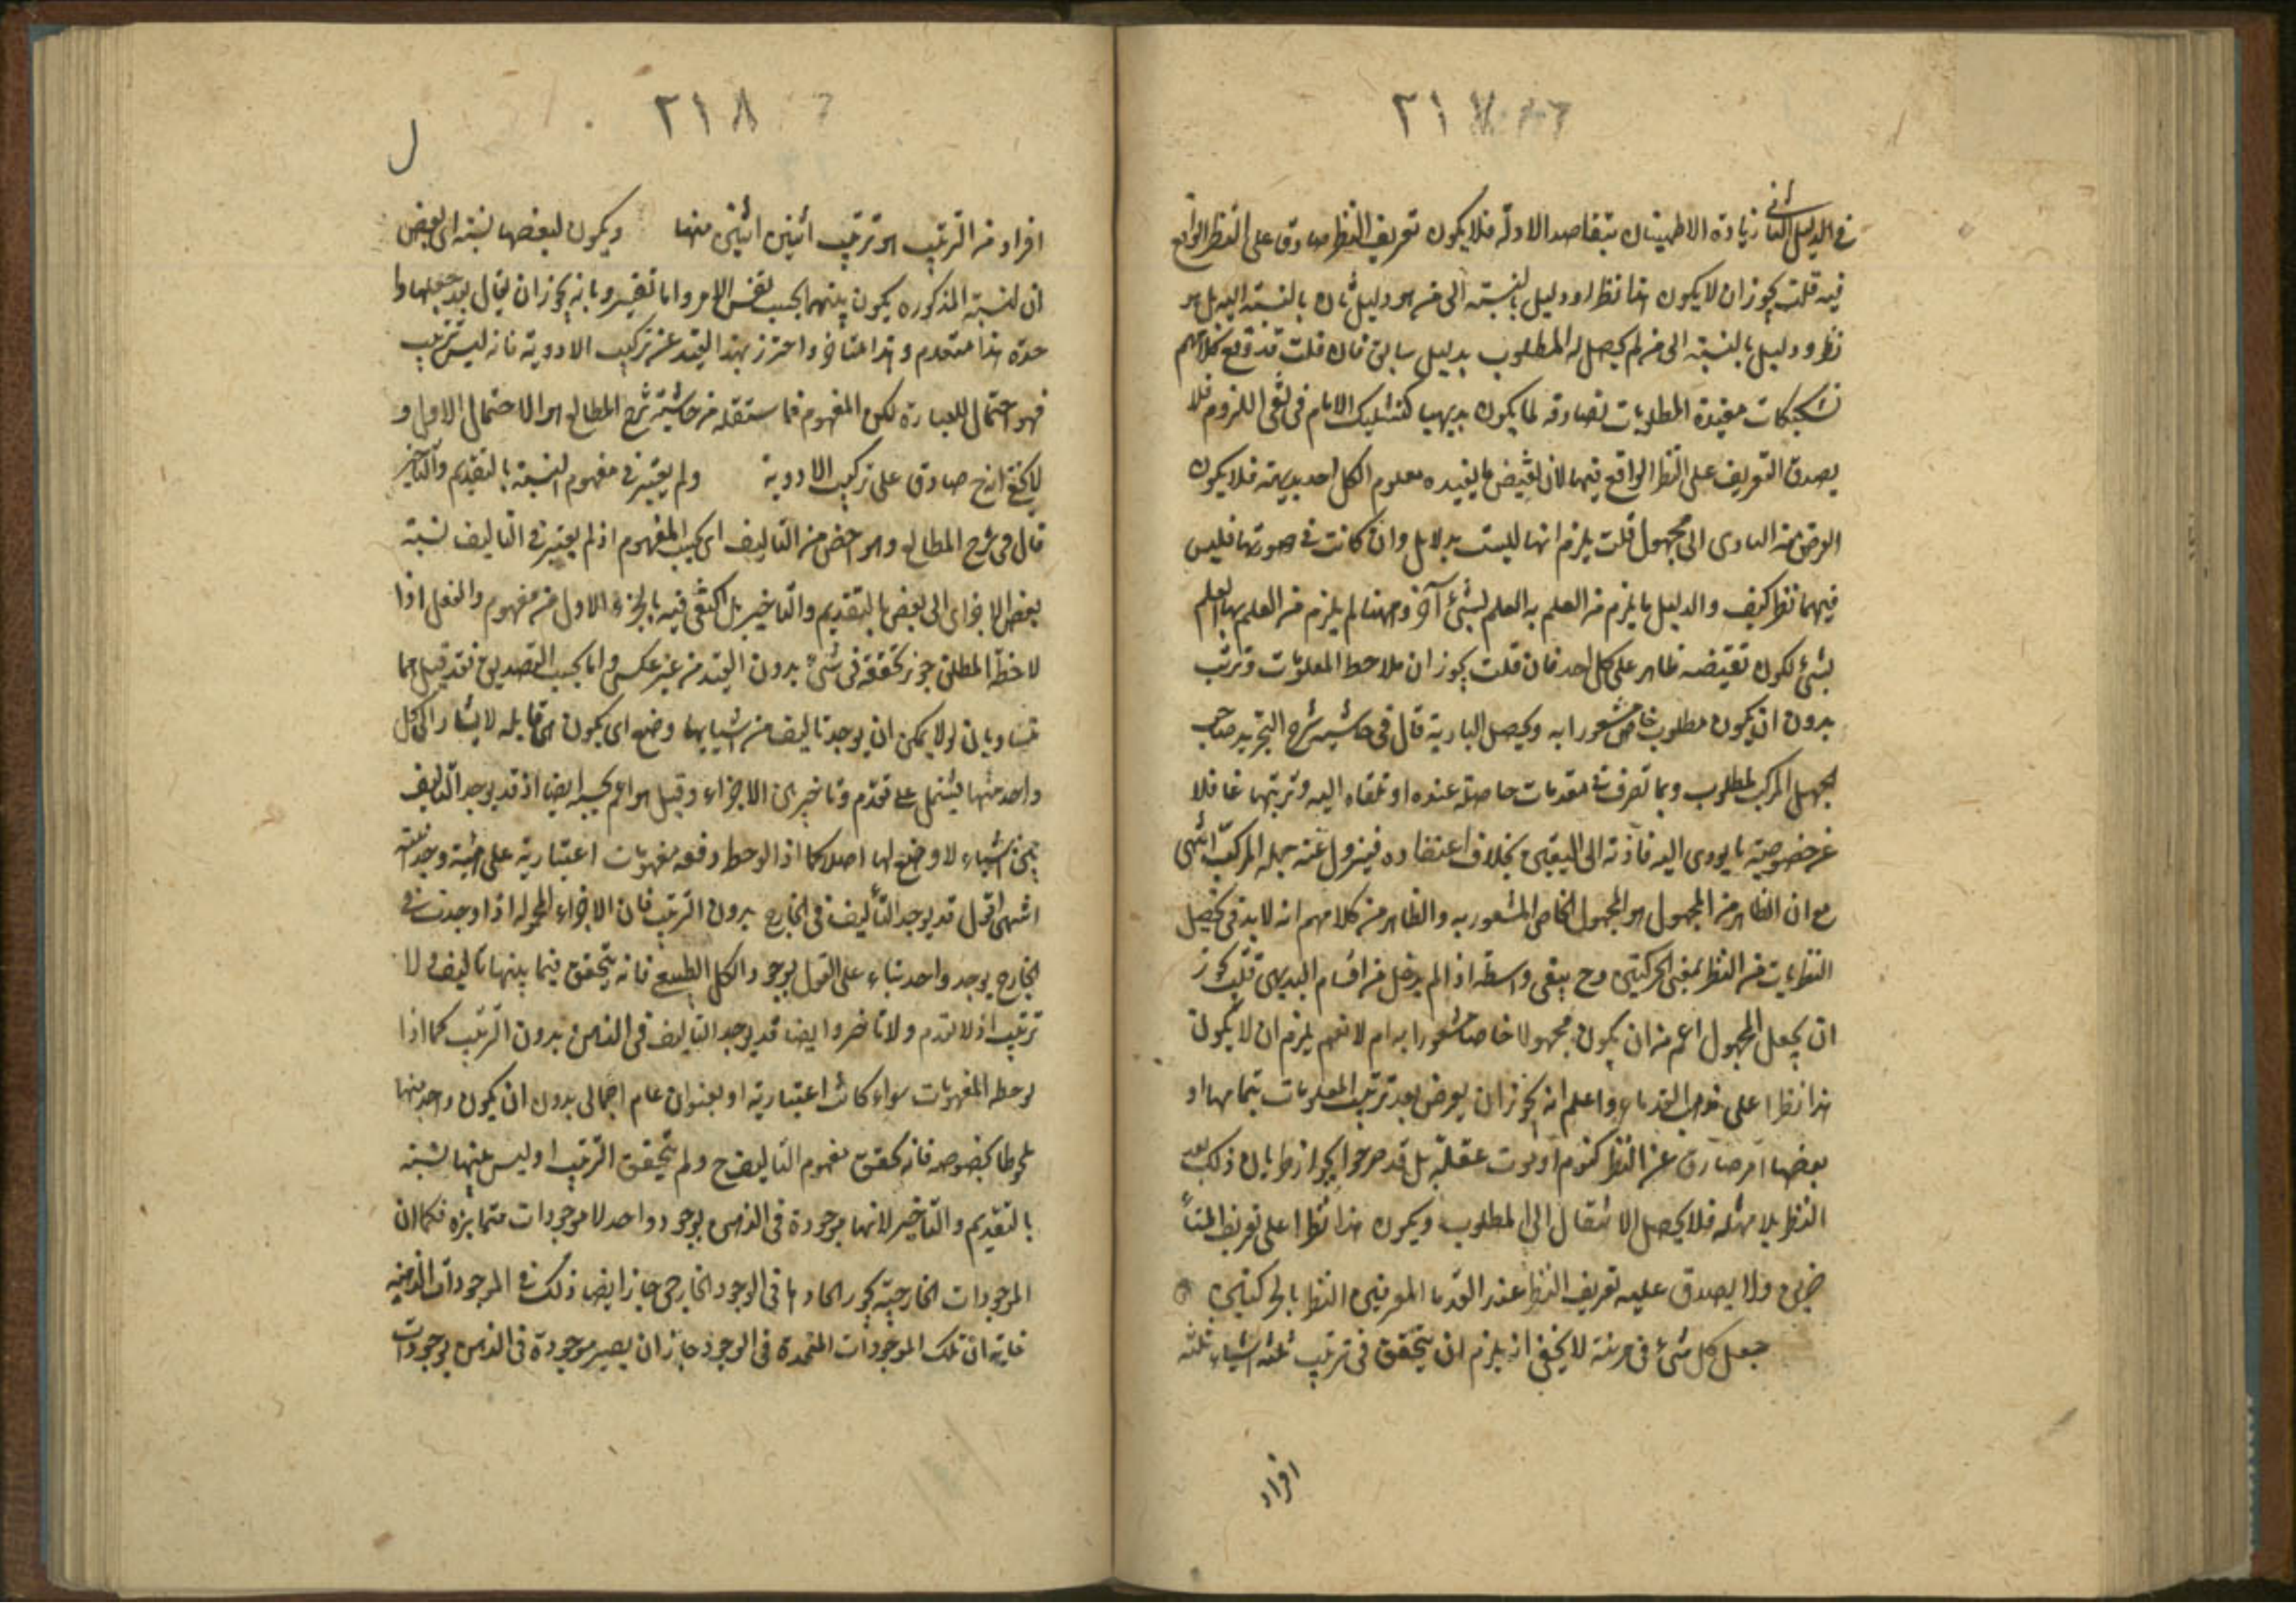 ٢١٧
في الدليل الثاني زيادة الاطمينان بتعاضد الادلة فلا يكون تعريف النظر صادق على النظر الواقع
فيه قلت يجوز ان لا يكون هذا نظرا ودليل بالنسبة الى من هو دليل ثان بالنسبة اليه بل هو
نظر ودليل بالنسبة الى من لم يحصل له المطلوب بدليل سابق فان قلت قد وقع في كلامهم
تشكيكات مفيدة المطلوبات تصادقه لما يكون بديهيا كتشكيك الامام في نفى اللزوم فلا
يصدق التعريف على النظر الواقع فيها لان نقيض ما يفيده معلوم لكل احد بديهية فلا يكون
الغرض منه التادى الى مجهول قلت يلزم انها ليست بدلايل وان كانت في صورتها فليس
فيهما نظر كيف والدليل ما يلزم من العلم به العلم بشئ آخر وههنا لم يلزم من العلم بها العلم
بشئ لكون نقيضه ظاهر على كل احد فان قلت يجوز ان يلاحظ المعلومات وترتب
بدون ان يكون مطلوب خاص مشعورا به ويحصل البادية قال في حاشية شرح التجريد صاحب
الجهل المركب لمطلوب ربما تصرف في مقدمات حاصلة عنده او ملقاه اليه وترتبها غافلا
عن خصوصية ما يودى اليه فأدته الى اليقين بخلاف اعتقاده فيزول عنه جهله المركب انتهى
مع ان الظاهر من المجهول هو المجهول الخاص المشعور به والظاهر من كلامهم انه لا بد في تحصيل
النظريات من النظر بمعنى الحركتين وح يبقى واسطة اذا لم يدخل من اقسام البديهى قلت يجوز
ان يجعل المجهول اعم من ان يكون مجهولا خاصا مشعورا به ام لا نعم يلزم ان لا يكون
هذا نظرا على مذهب القدماء واعلم انه يجوز ان يعرض بعد ترتيب المعلومات بتمامها او
بعضها امر صارف عن النظر كنوم او موت عقلة بل قد صرحوا بجواز طريان ذلك بعد
النظر بلا مهلة فلا يحصل الانتقال الى المطلوب ويكون هذا نظرا على تعريف المتأ
خرين ولا يصدق عليه تعريف النظر عند القدما المعرفين النظر بالحركتين
جعل كل شئ في مرتبة لا يخفى انه يلزم ان يتحقق في ترتيب ثلثة اشياء ثلثة
افراد
٢١٨
ل
افراد من الترتيب هو ترتيب اثنين اثنين منها ويكون لبعضها نسبة الى بعض
ان النسبة المذكوره يكون بينهما بحسب نفس الامر واما تفسيره بانه يجوز ان يقال بعد جعلها وا
حدة هذا متقدم وهذا متاخر واحترز بهذا القيد عن تركيب الادوية فانه ليس ترتيب
فهو احتمال للعبارة لكن المفهوم مما ستنقله من حاشية شرح المطالع هو الاحتمال الاول و
لا يخفى انه ح صادق على تركيب الادوية ولم يعتبر في مفهوم النسبة بالتقديم والتأخير
قال في شرح المطالع وهو اخص من التاليف اى بحسب المفهوم اذ لم يعتبر في التاليف نسبة
بعض الاجزاء الى بعض بالتقديم والتأخير بل اكتفى فيه بالجزء الاول من مفهوم والعقل اذا
لاحظ المطلق جوز تحققه في شئ بدون القيد من غير عكس واما بحسب التصديق فقد قيل هما
متساويان لو لا يمكن ان يوجد تاليف من اشياء لها وضع اى يكون قابلة لا يشار الى كل
واحد منها فيشتمل على تقدم وتاخير بين الاجزاء وقيل هو اعم بحسبه ايضا اذ قد يوجد التاليف
بين اشياء لا وضع لها اصلا كما اذا لوحظ دفعة مفهومات اعتبارية على هيئة وحدانية
انتهى اقول قد يوجد التأليف في الخارج بدون الترتيب فان الاجزاء المحموله اذا وجدت في
الخارج بوجود واحد بناء على القول بوجود الكلى الطبيعى فانه يتحقق فيما بينها تاليف ولا
ترتيب اذ لا تقدم ولا تاخر وايضا قد يوجد التاليف في الذهن بدون الترتيب كما اذا
لوحظ المفهومات سواء كانت اعتبارية او بعنوان عام اجمالى بدون ان يكون واحد منها
ملحوظا بخصوصه فانه يتحقق مفهوم التاليف ح ولم يتحقق الترتيب او ليس بينها نسبة
بالتقديم والتأخير لانها موجودة في الذهن بوجود واحد لا موجودات متمايزه فكما ان
الموجودات الخارجية يجوز اتحادها في الوجود الخارجى جاز ايضا ذلك في الموجودات الذهنية
غايته ان تلك الموجودات المتحدة في الوجود جاز ان يصير موجودة في الذهن بوجودات